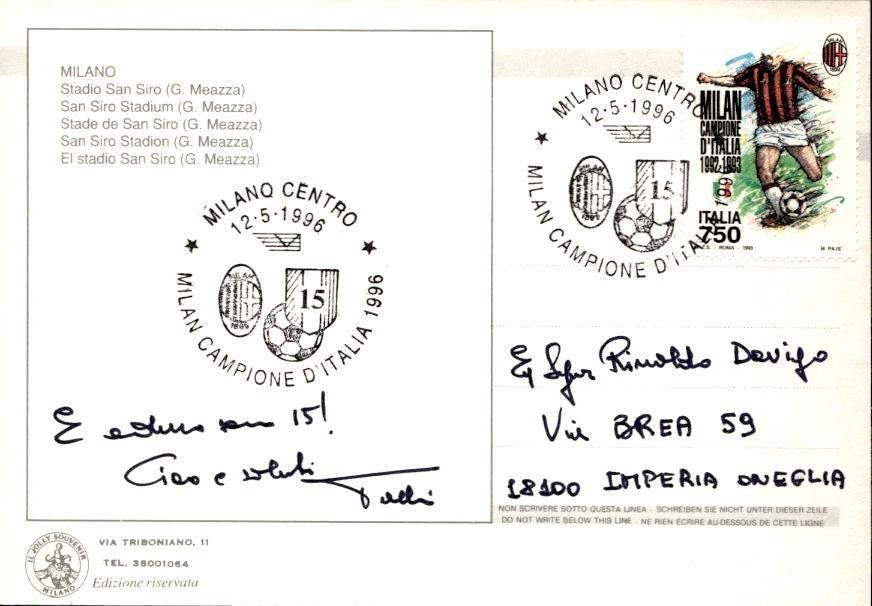 MILANO
Stadio San Siro (G. Meazza)
San Siro Stadium (G. Meazza)
Stade de San Siro (G. Meazza)
San Siro Stadion (G. Meazza)
El stadio San Siro (G. Meazza)
MILANO CENTRO
12-5-1996
MILAN
1899
15
MILAN CAMPIONE D'ITALIA 1996
E adesso sono 15!
Ciao e saluti
MILANO CENTRO
12-5-1996
MILAN
1899
15
MILAN CAMPIONE D'ITALIA 1996
MILAN
1899
MILAN
CAMPIONE
D'ITALIA
1992-1993
ITALIA
750
I.P.Z.S. - ROMA - 1993
M. PAJE'
Eg Sigr Rinaldo Davigo
Via BREA 59
18100 IMPERIA ONEGLIA
NON SCRIVERE SOTTO QUESTA LINEA - SCHREIBEN SIE NICHT UNTER DIESER ZEILE
DO NOT WRITE BELOW THIS LINE - NE RIEN ÉCRIRE AU-DESSOUS DE CETTE LIGNE
IL JOLLY SOUVENIR
MILANO
VIA TRIBONIANO, 11
TEL. 38001064
Edizione riservata